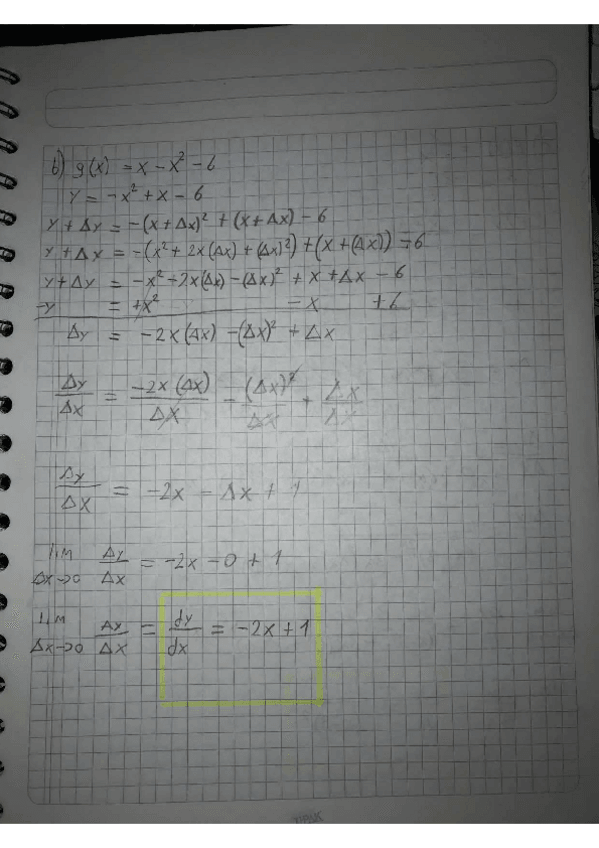 b) g(x) = x - x² - 6
y = -x² + x - 6
y + Δy = -(x + Δx)² + (x + Δx) - 6
y + Δx = -(x² + 2x(Δx) + (Δx)²) + (x + (Δx)) - 6
y + Δy = -x² - 2x(Δx) - (Δx)² + x + Δx - 6
-y = +x² - x + 6
Δy = -2x(Δx) - (Δx)² + Δx
Δy/Δx = -2x(Δx)/Δx - (Δx)²/Δx + Δx/Δx
Δy/Δx = -2x - Δx + 1
lim Δx→0 Δy/Δx = -2x - 0 + 1
lim Δx→0 Δy/Δx = dy/dx = -2x + 1